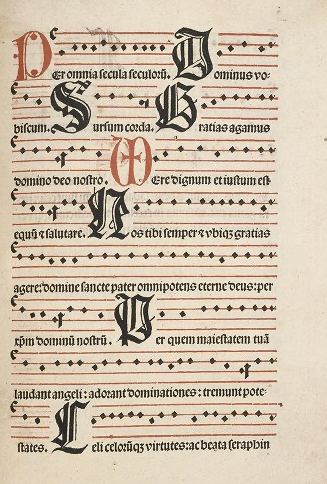 Per omnia secula seculorū. Dominus vo-
biscum. Sursum corda. Gratias agamus
domino deo nostro. Vere dignum et iustum est
equū ⁊ salutare. Nos tibi semper ⁊ vbiqꝫ gratias
agere: domine sancte pater omnipotens eterne deus: per
xp̄m dominū nostrū. Per quem maiestatem tuā
laudant angeli: adorant dominationes: tremunt pote-
states. Celi celorūqꝫ virtutes: ac beata seraphin